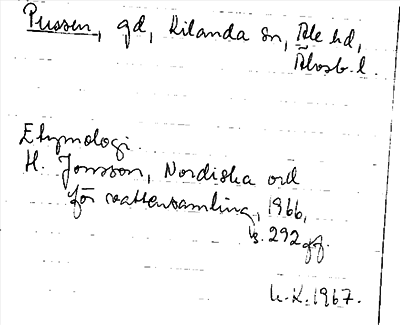 Pussen, gd, Kilanda sn, Ale hd,
Älvsb. l.
Etymologi
H. Jonsson, Nordiska ord
för vattensamling, 1966,
s. 292 ff.
U.K. 1967.